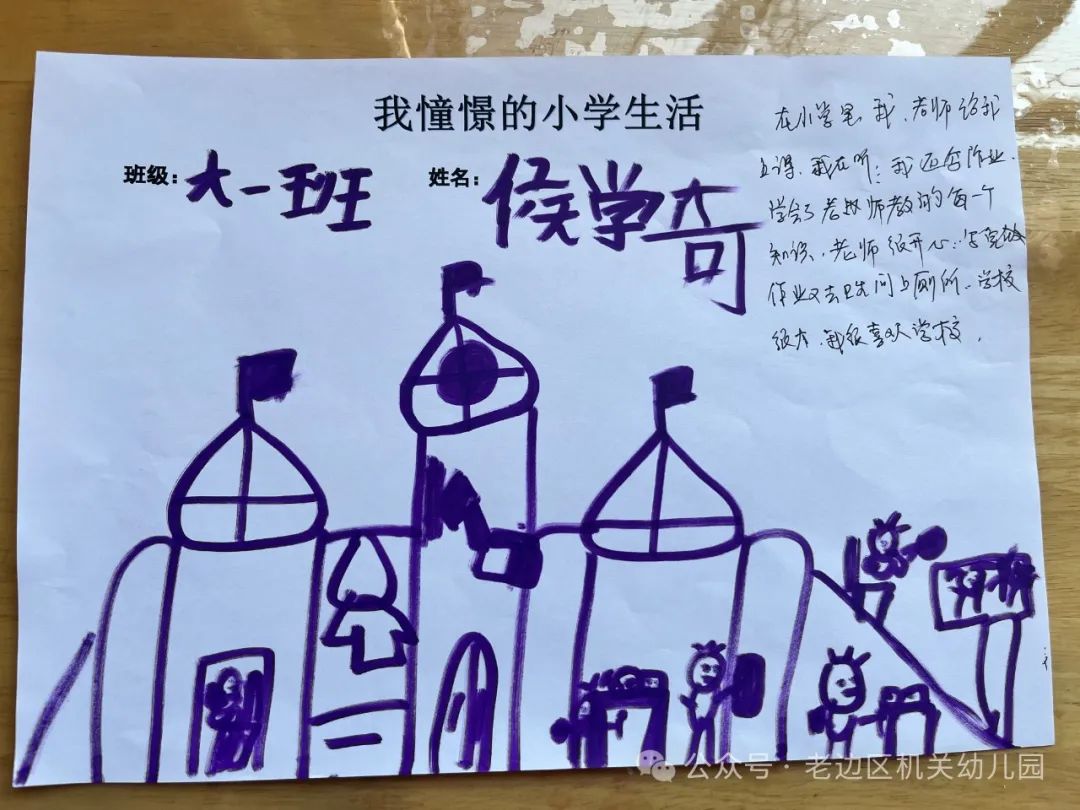 我憧憬的小学生活
班级：大一班 姓名：侯学奇
在小学里，我，老师给我
上课，我在听，我还写作业，
学会了老师教的每一个
知识，老师很开心，写完
作业又去卫生间上厕所，学校
很大，我很喜欢学校，
公众号·老边区机关幼儿园